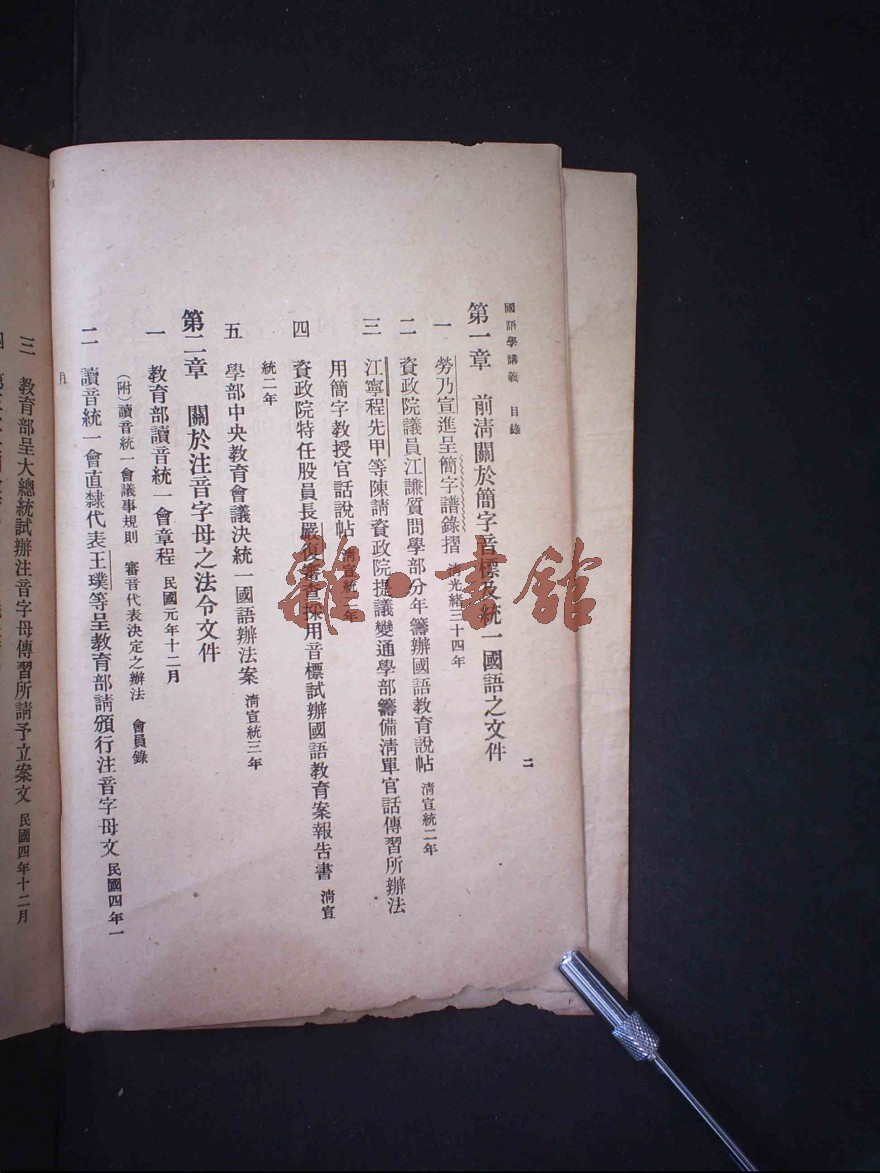 國語學講義 目錄
二
第一章 前淸關於簡字音標及統一國語之文件
一 勞乃宣進呈簡字譜錄摺 淸光緒三十四年
二 資政院議員江謙質問學部分年籌辦國語教育說帖 淸宣統二年
三 江寧程先甲等陳請資政院提議變通學部籌備淸單官話傳習所辦法
用簡字教授官話說帖 淸宣統二年
四 資政院特任股員長嚴復審查採用音標試辦國語教育案報告書 淸宣
統二年
五 學部中央教育會議決統一國語辦法案 淸宣統三年
第二章 關於注音字母之法令文件
一 教育部讀音統一會章程 民國元年十二月
(附)讀音統一會議事規則 審音代表決定之辦法 會員錄
二 讀音統一會直隸代表王璞等呈教育部請頒行注音字母文 民國四年一
月
三 教育部呈大總統試辦注音字母傳習所請予立案文 民國四年十二月
雜·書館